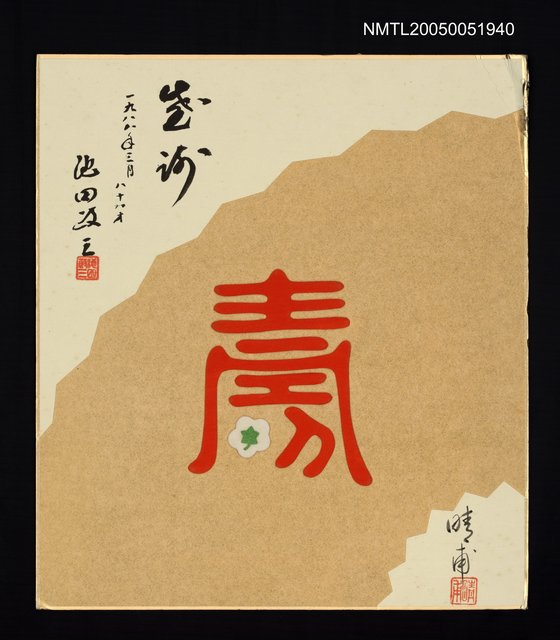 NMTL20050051940
感謝
一九八八年三月 八十八才
池田敏三
壽
晴甫